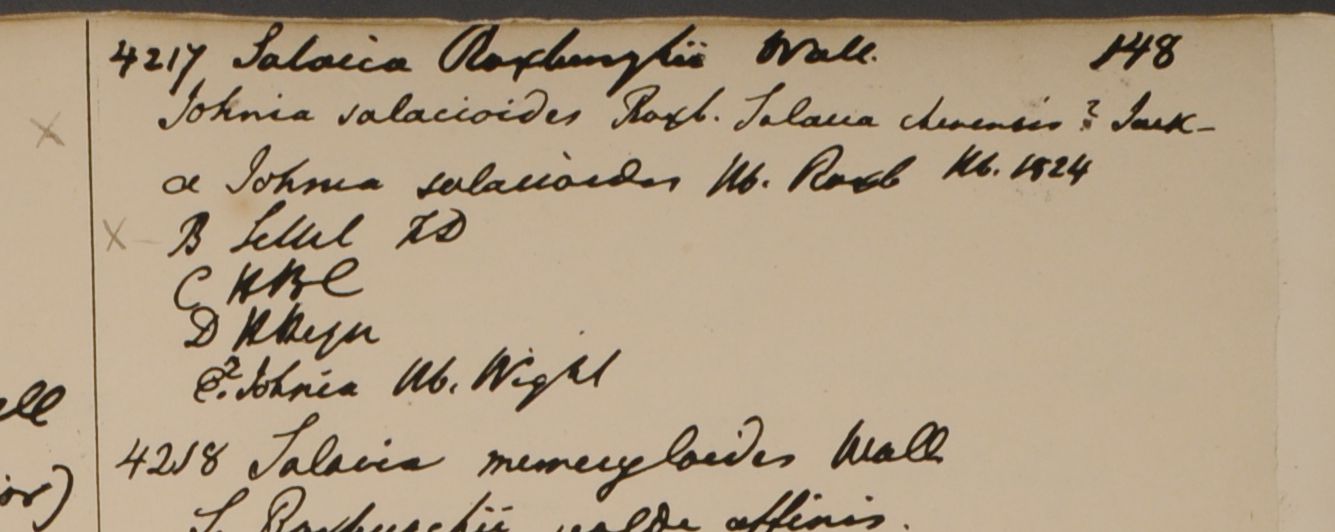 4217 Salacia Roxburghii Wall. 148
Johnia salacioides Roxb. Salacia chinensis? Jack-
a Johnia salacioides Hb. Roxb Hb. 1824
B Sillet FD
C HBC
D HHeyn
E? Johnia Hb. Wight
ell
4218 Salacia memecyloides Wall
or)
S. Roxburghii valde affinis.